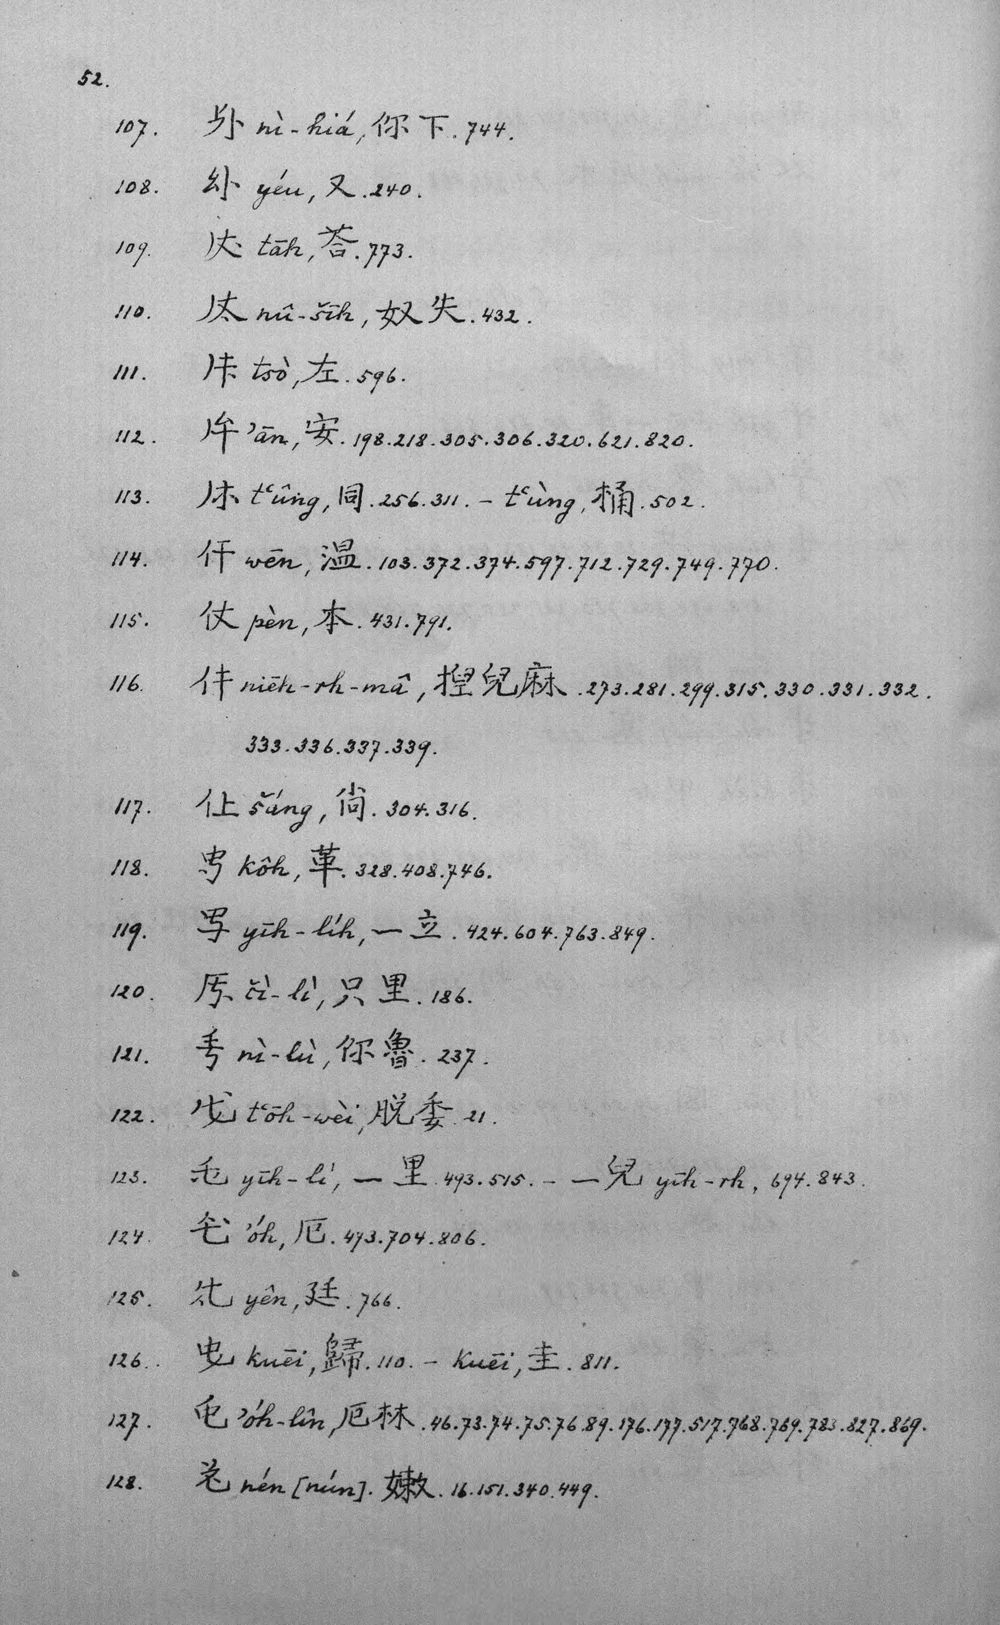 52.
107. nì-hiá, 你下. 744.
108. yéu, 又. 240.
109. tāh, 荅. 773.
110. nû-šĭh, 奴失. 432.
111. tsò, 左. 596.
112. ʾān, 安. 198.218.305.306.320.621.820.
113. tʿûng, 同. 256.311. – tʿùng, 桶. 502.
114. wēn, 温. 103.372.374.597.712.729.749.770.
115. pèn, 本. 431.791.
116. niēh-rh-mâ, 揑兒麻. 273.281.299.315.330.331.332.
333.336.337.339.
117. šáng, 尙. 304.316.
118. kôh, 革. 328.408.746.
119. yīh-líh, 一立. 424.604.763.849.
120. čì-lì, 只里. 186.
121. nì-lù, 你魯. 237.
122. tʿōh-wèi, 脱委. 21.
123. yīh-lì, 一里. 493.515. – 一兒 yīh-rh, 694.843.
124. ʾóh, 厄. 473.704.806.
125. yên, 廷. 766.
126. kuēi, 歸. 110. – kuēi, 圭. 811.
127. ʾóh-lîn, 厄林. 46.73.74.75.76.89.176.177.517.768.769.783.827.869.
128. nén [nún]. 嫩. 16.151.340.449.